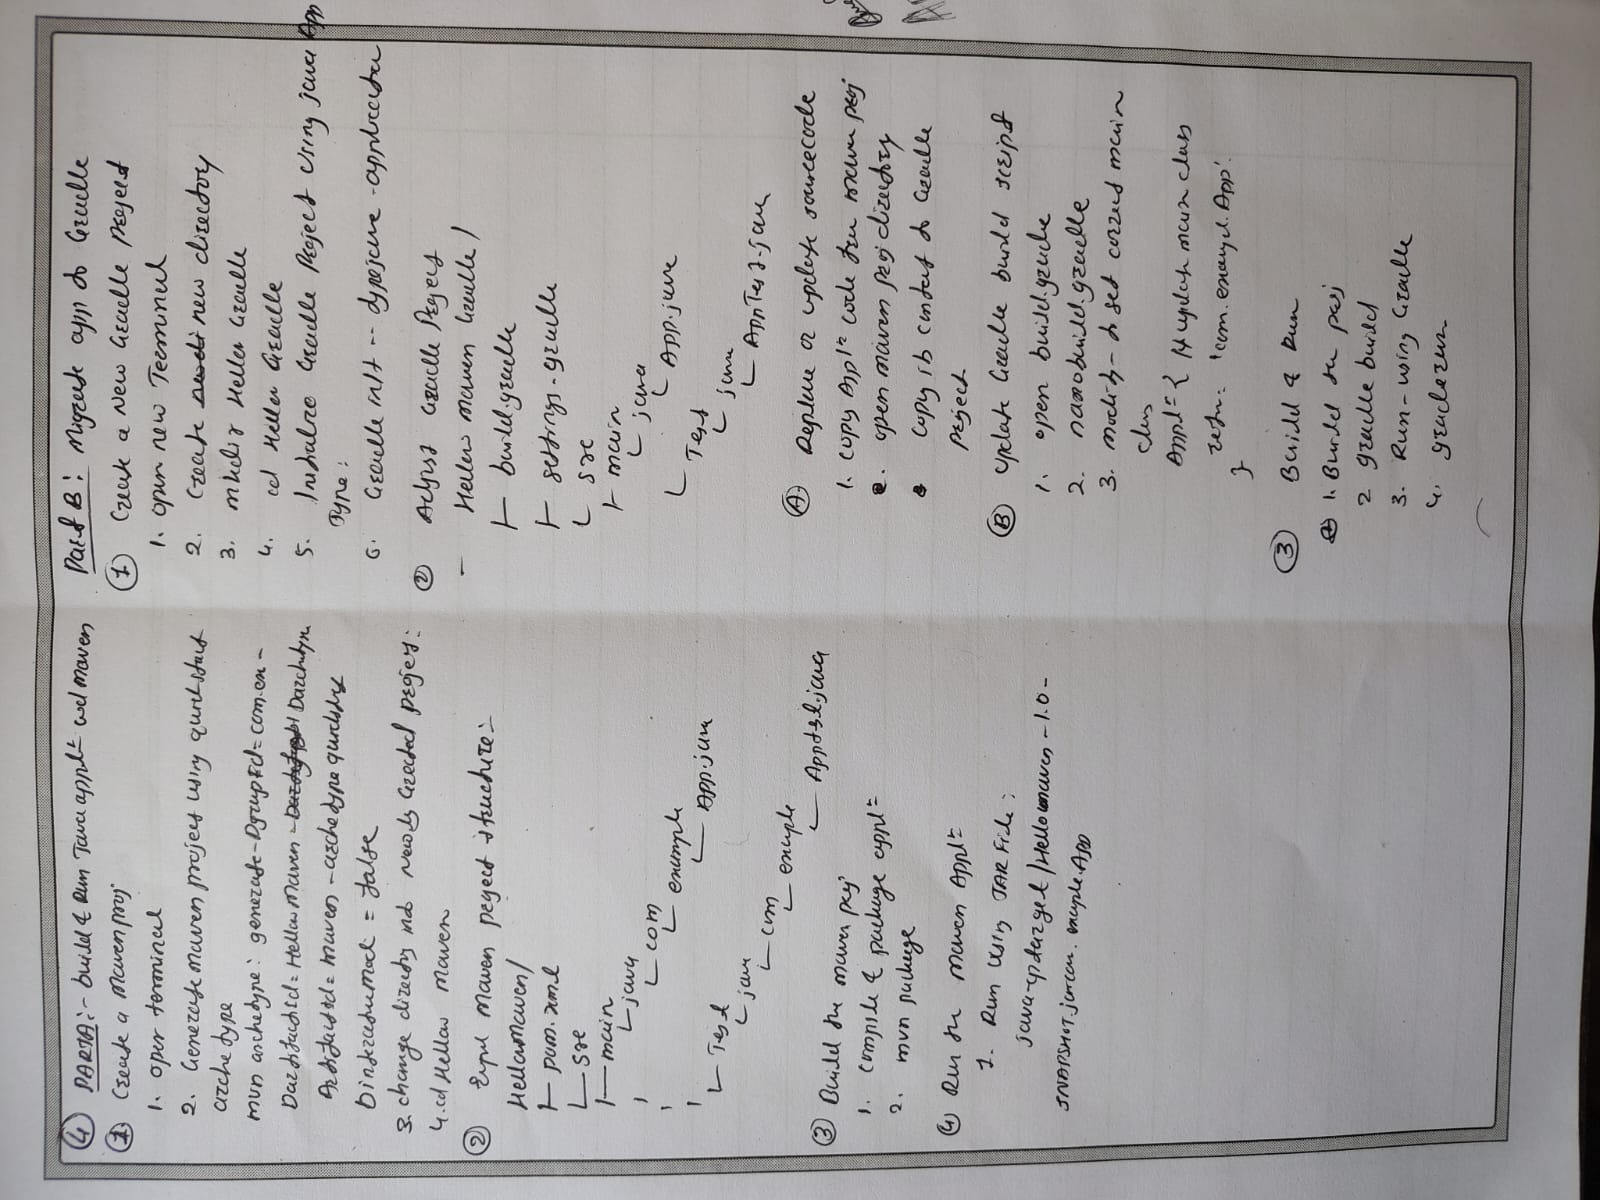 (4) PARTA:- build & Run Java appln wd maven
(1) Create a Maven proj.
1. open terminal
2. Generate maven project using quickstart
archetype
mvn archetype: generate-DgroupId=com.en-
DartifactId=Hellow Maven - Darchtype
ArtifactId= maven -archetype quickstart
Dinteractivemode = false
3. change directory into newly created project:
4. cd Hellow maven
(2) Expl maven project structure:-
Hellowmaven/
├ pom.xml
└ Src
├ main
└ java
└ com
└ example
└ App.java
└ Test
└ java
└ com
└ example
└ Apptst.java
(3) Build the maven proj
1. compile & package appln
2. mvn package
(4) Run the maven Appln
1. Run using JAR File:
java-cp target/Hellowmaven-1.0-
SNAPSHOT.jarcom.example.App
Part B: Migrate app to Gradle
(1) Create a New Gradle Project
1. open new Terminal
2. Create new directory
3. mkdir Hellow Gradle
4. cd Hellow Gradle
5. Initialize Gradle Project Using java App
Type:
6. Gradle init -- type java -application
(2) Adjust Gradle Project
- Hellow maven Gradle/
├ build.gradle
├ settings.gradle
└ Src
├ main
└ java
└ App.java
└ Test
└ java
└ AppTest.java
(A) Replace or update sourcecode
1. copy Appln code from maven proj
2. open maven proj directory
copy its content to Gradle
Project
(B) update Gradle build script
1. open build.gradle
2. nano build.gradle
3. modify to set correct main
class
Appln { # update main class
= 'com.example.App'
}
(3) Build & Run
1. Build the proj
2 gradle build
3. Run-using Gradle
4. gradlerun